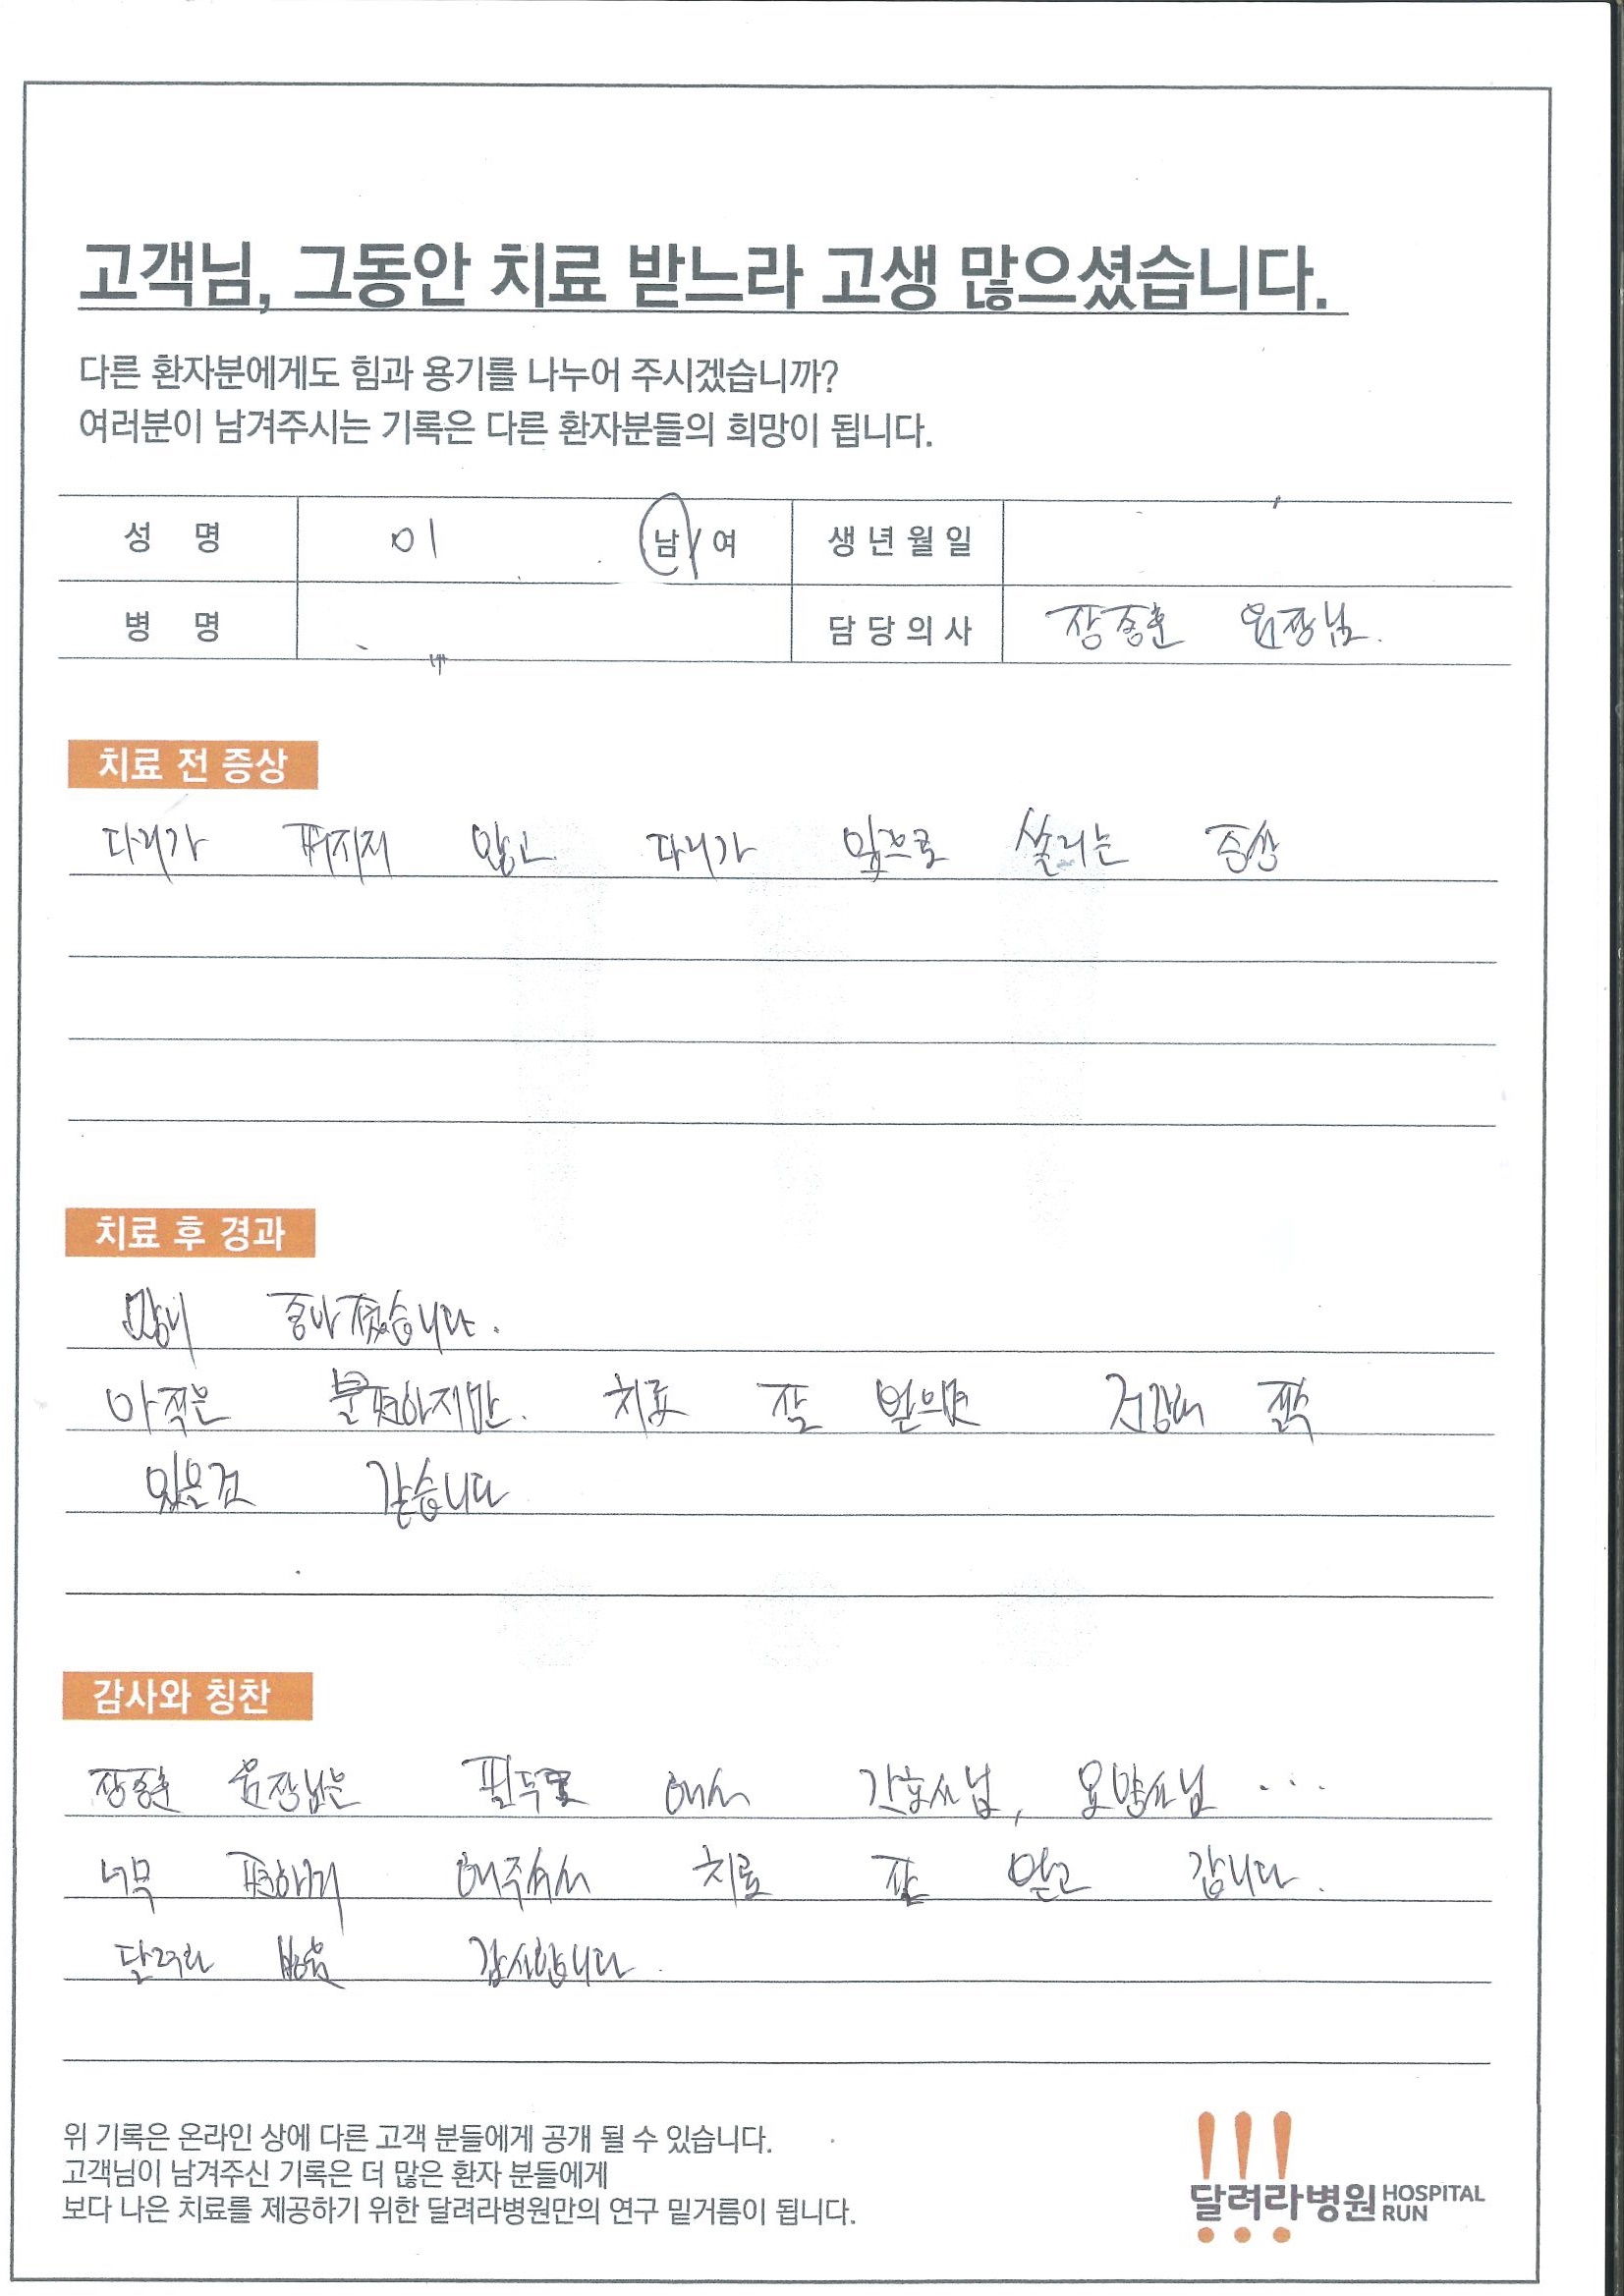 고객님, 그동안 치료 받느라 고생 많으셨습니다.
다른 환자분에게도 힘과 용기를 나누어 주시겠습니까?
여러분이 남겨주시는 기록은 다른 환자분들의 희망이 됩니다.
성 명 이 남/여 생년월일
병 명 담당의사 장종훈 원장님.
치료 전 증상
다리가 펴지지 않고 다리가 앞으로 쏠리는 증상
치료 후 경과
많이 좋아졌습니다.
아직은 불편하지만. 치료 잘 받으면 건강해 질수
있을것 같습니다
감사와 칭찬
장종훈 원장님은 필두로 해서 간호사님, 요양사님 ...
너무 편하게 해주셔서 치료 잘 받고 갑니다.
달려라 병원 감사합니다.
위 기록은 온라인 상에 다른 고객 분들에게 공개 될 수 있습니다.
고객님이 남겨주신 기록은 더 많은 환자 분들에게
보다 나은 치료를 제공하기 위한 달려라병원만의 연구 밑거름이 됩니다.
달려라병원 HOSPITAL RUN